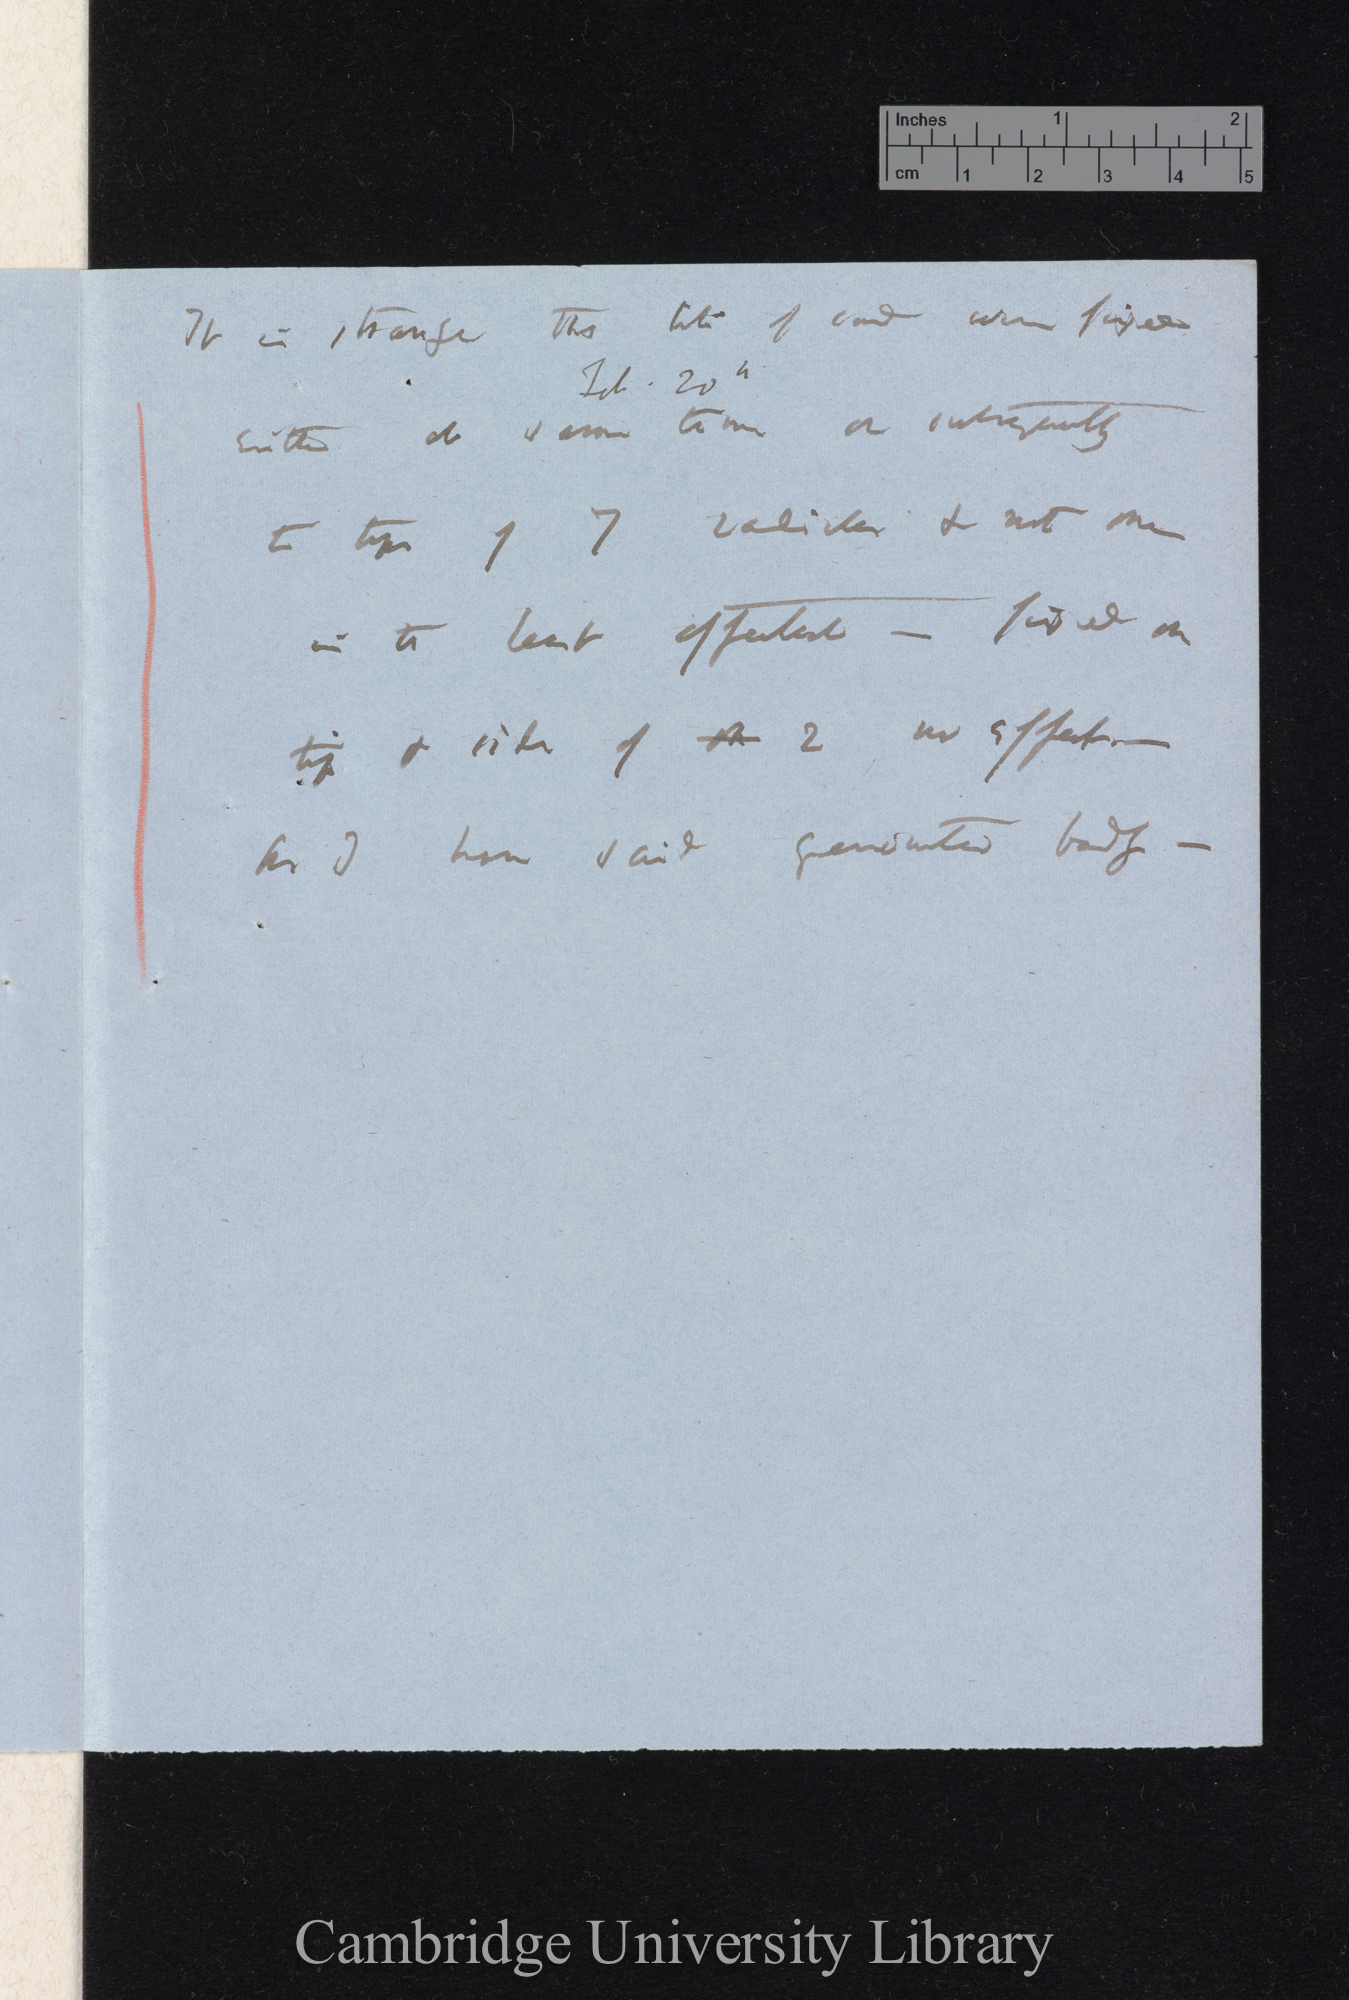 Inches 1 2
cm 1 2 3 4 5
It is strange tho bits of card were fixed
Feb. 20th
either at same time or subsequently
to tips of 7 radicles & not one
in the least affected — fixed on
tip & side of 2 no effect —
As I have said germinated badly —
Cambridge University Library